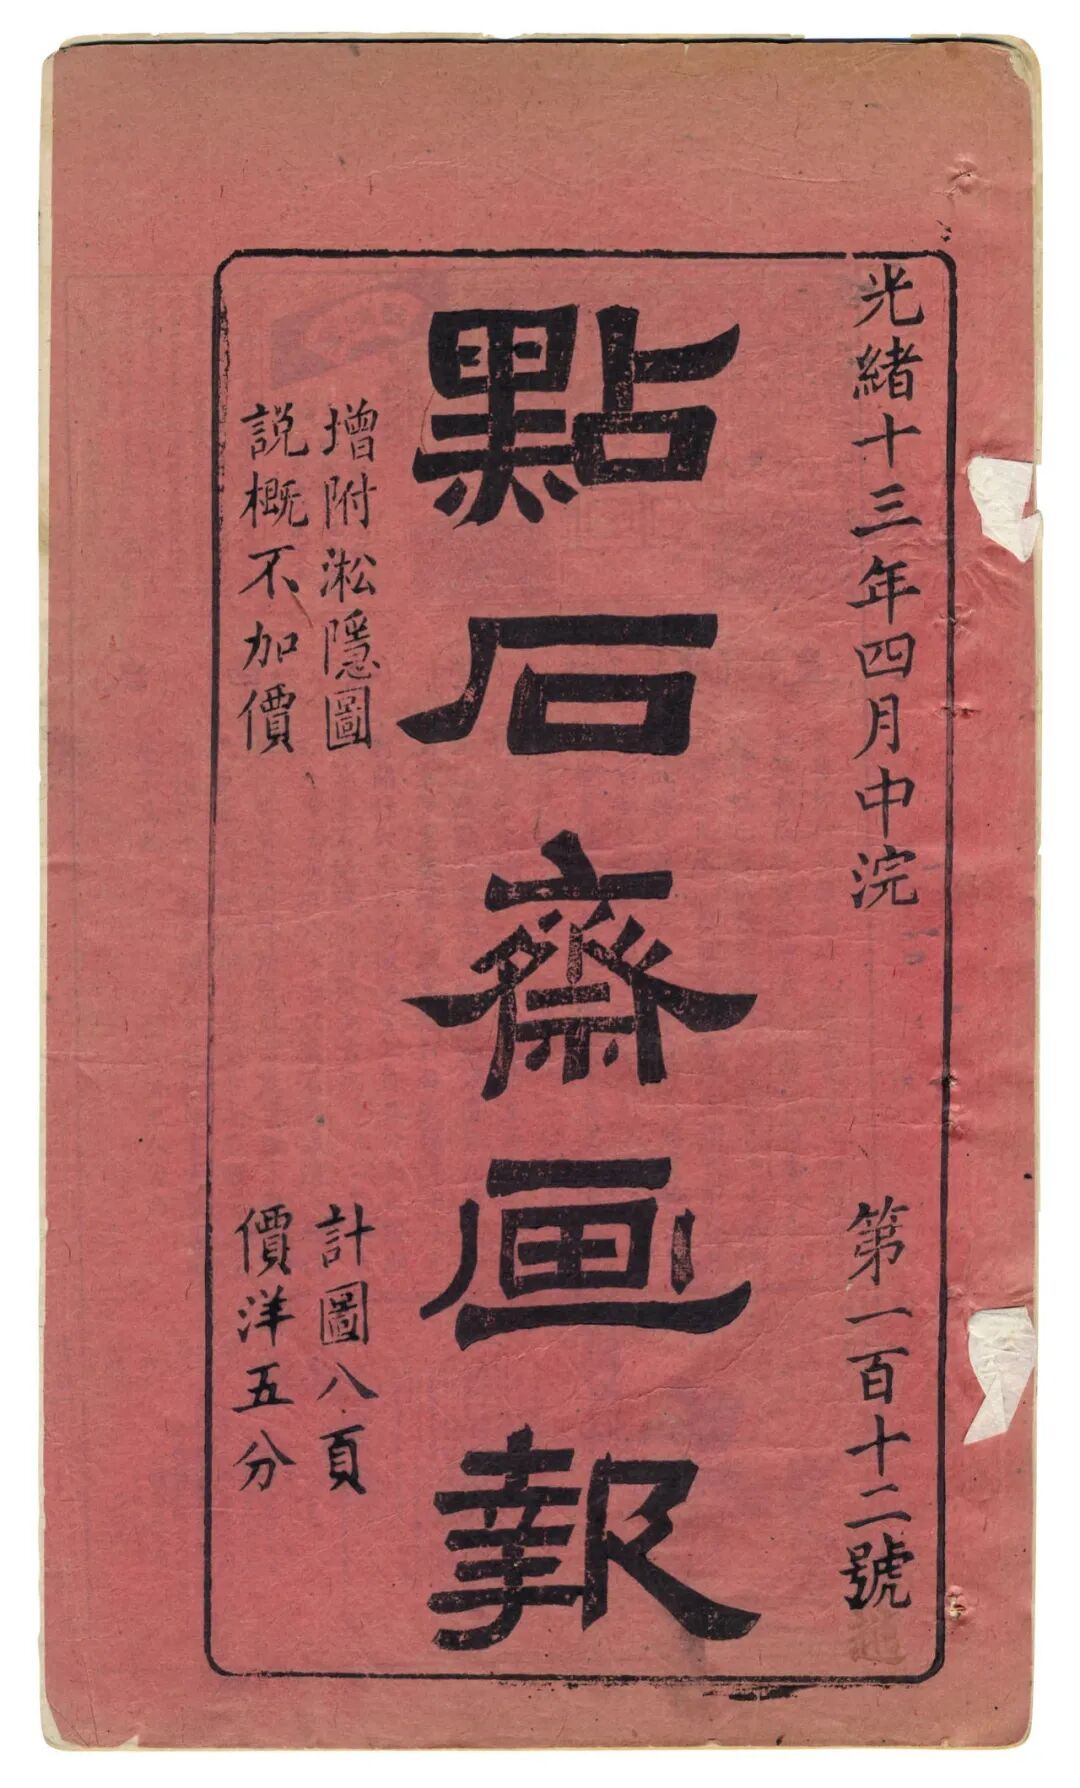 光緒十三年四月中浣
第一百十二號
點石齋画報
增附淞隱圖
說概不加價
計圖八頁
價洋五分